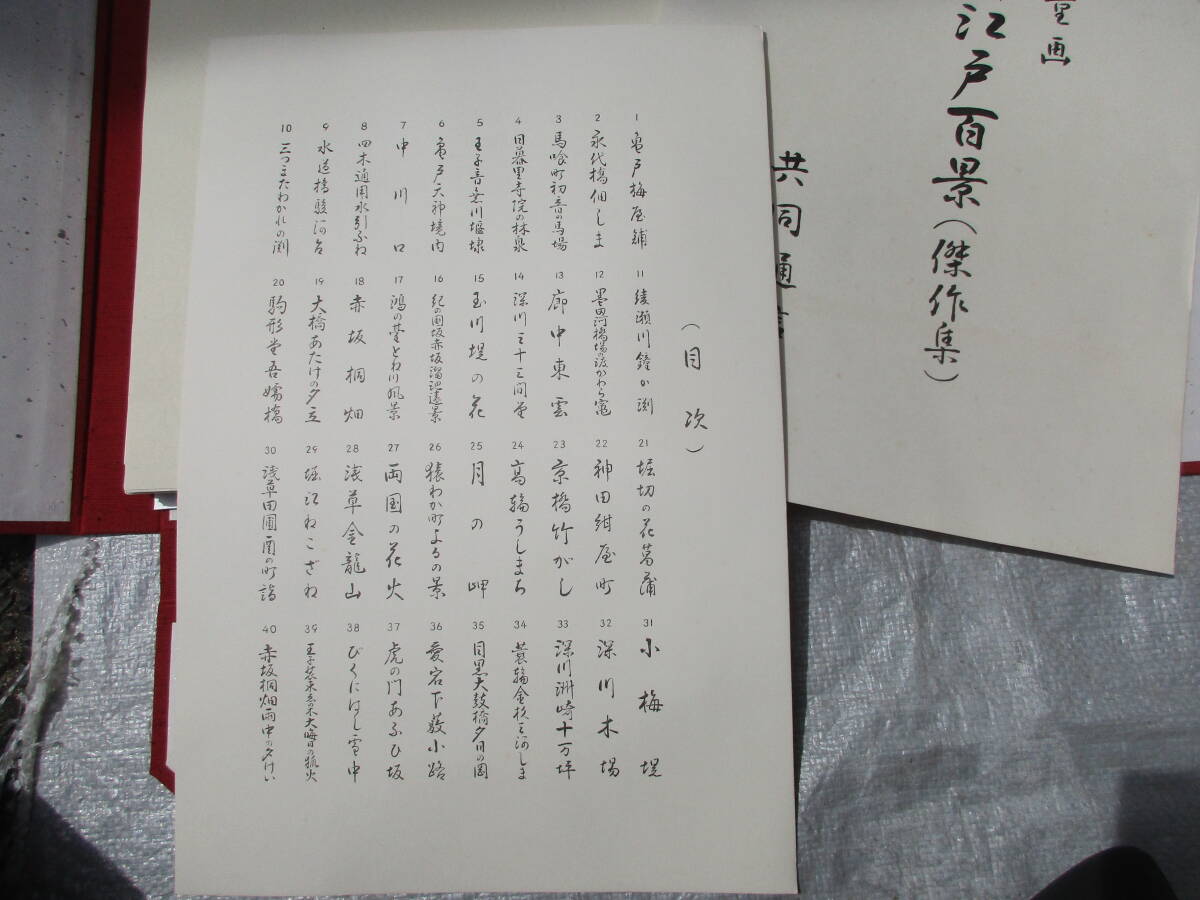 重画
江戸百景(傑作集)
共同通信
(目次)
1 亀戸梅屋舗
2 永代橋佃しま
3 馬喰町初音の馬場
4 日暮里寺院の林泉
5 王子音無川堰埭
6 亀戸天神境内
7 中川口
8 四木通用水引ふね
9 水道橋駿河台
10 三つまたわかれの渕
11 綾瀬川鐘か渕
12 墨田河橋場の渡かわら竈
13 廓中東雲
14 深川三十三間堂
15 玉川堤の花
16 紀の国坂赤坂溜池遠景
17 鴻の台とね川風景
18 赤坂桐畑
19 大橋あたけの夕立
20 駒形堂吾嬬橋
21 堀切の花菖蒲
22 神田紺屋町
23 京橋竹がし
24 高輪うしまち
25 月の岬
26 猿わか町よるの景
27 両国の花火
28 浅草金龍山
29 堀江ねこざね
30 浅草田圃酉の町詣
31 小梅堤
32 深川木場
33 深川洲崎十万坪
34 蓑輪金杉三河しま
35 目黒太鼓橋夕日の岡
36 愛宕下藪小路
37 虎の門あふひ坂
38 びくにはし雪中
39 王子装束ゑの木大晦日の狐火
40 赤坂桐畑雨中夕けい